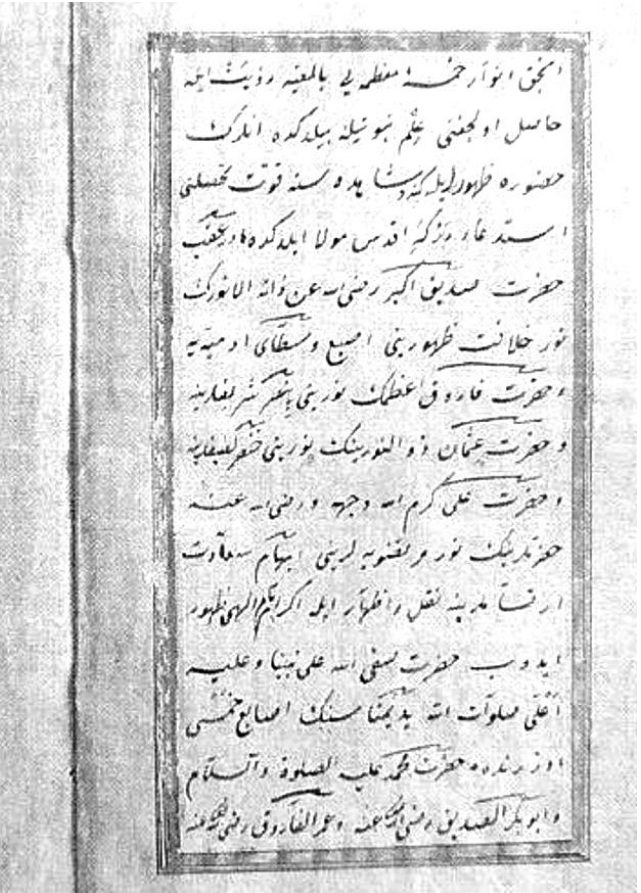 انجق انوار خمسه معظمه یی بالمعنیه رؤیت ایله
حاصل اولجغنی علم نبوتیله بیلدکده انلرك
حضوره ظهور ایله مشاهده سنه قوت تحصیلنی
استدعا درگه اقدس مولا ایلدکده در عقب
حضرت صدیق اکبر رضی الله عن ذاته الانورك
نور خلافت ظهورینی اصبع وسطای ادمیه یه
و حضرت فاروق اعظمك نورینی بنصر لرینه
و حضرت عثمان ذو النورینك نورینی خنصر لرینه
و حضرت علی کرم الله وجهه و رضی الله عنه
حضرتلرینك نور مرتضویه لرینی ابهام سعادت
ارتسا ملرینه نقل و اظهار ایله اکرام الهی ظهور
ایدوب حضرت صفی الله علی نبینا و علیه
أعلی صلوات الله ید یمنا سنك اصابع خمسی
اوزرنده حضرت محمد علیه الصلوة والسلام
و ابو بکر الصدیق رضی الله عنه و عمر الفاروق رضی الله عنه